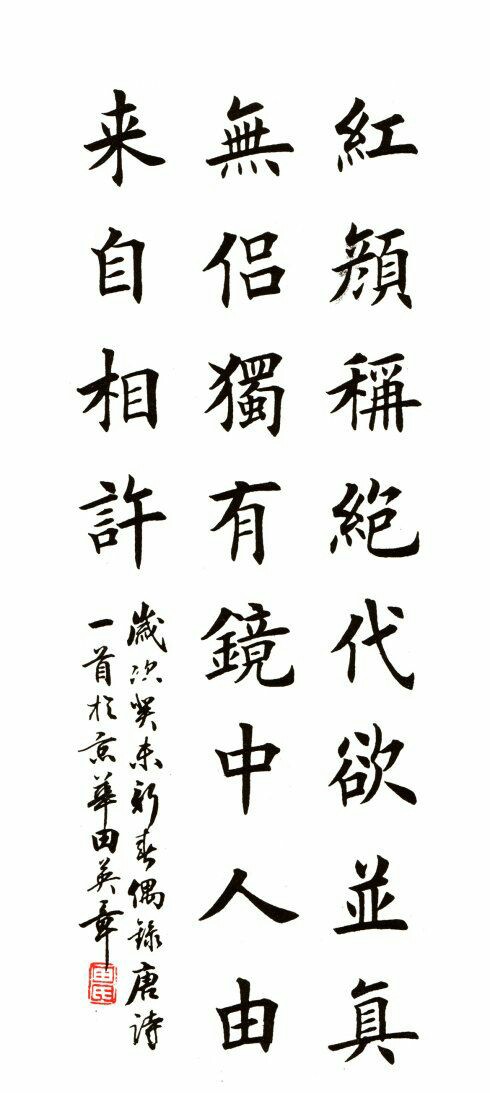 紅顏稱絕代欲並真
無侣獨有鏡中人由
来自相許
歲次癸未新春偶錄唐诗
一首於京華田英章
田氏